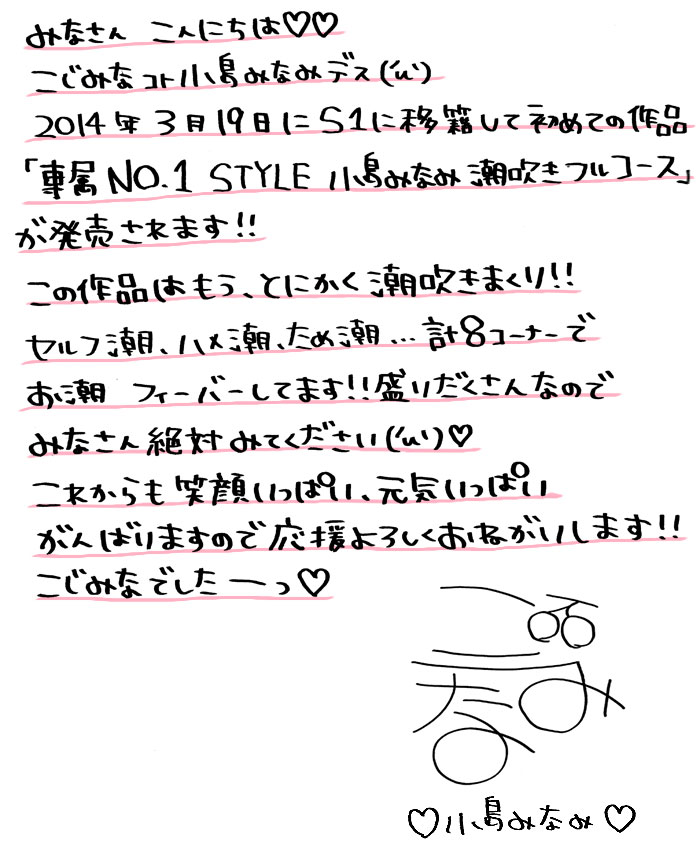 みなさん こんにちは♡♡
こじみなコト小島みなみデス('ω')
2014年3月19日にS1に移籍して初めての作品
「専属NO.1 STYLE 小島みなみ潮吹きフルコース」
が発売されます!!
この作品はもう、とにかく潮吹きまくり!!
セルフ潮、ハメ潮、ため潮...計8コーナーで
お潮 フィーバーしてます!!盛りだくさんなので
みなさん絶対みてください('ω')♡
これからも笑顔いっぱい、元気いっぱい
がんばりますので応援よろしくおねがいします!!
こじみなでしたーっ♡
♡小島みなみ♡